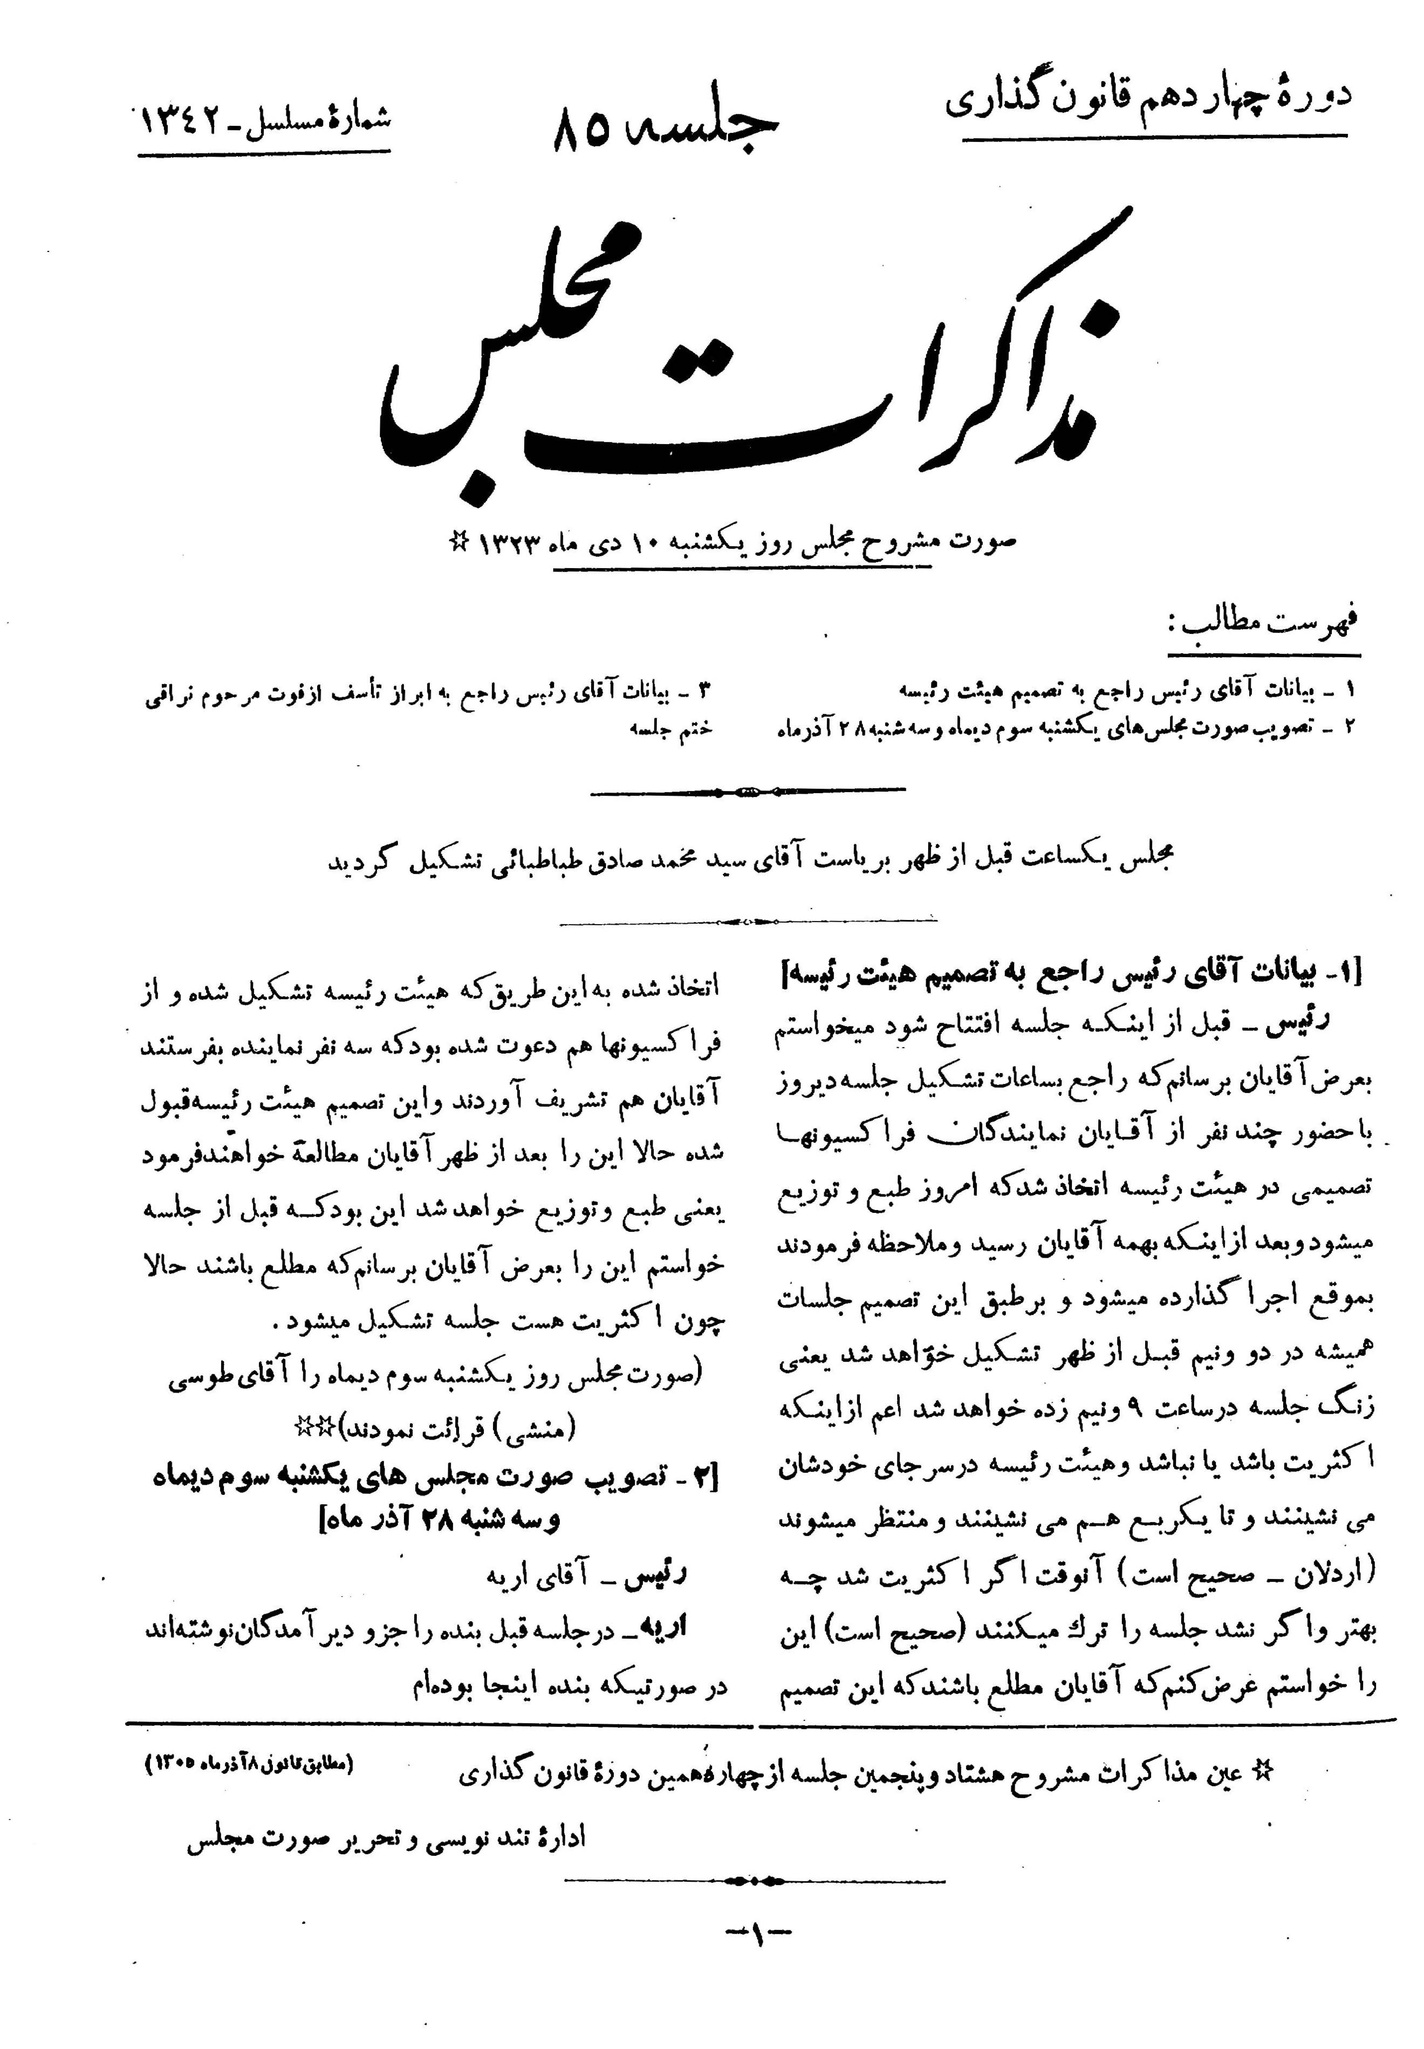 دورهٔ چهاردهم قانون گذاری
جلسه ۸۵
شمارهٔ مسلسل ـ ۱۳۴۲
مذاکرات مجلس
صورت مشروح مجلس روز یکشنبه ۱۰ دی ماه ۱۳۲۳ ☆
فهرست مطالب :
۱ ـ بیانات آقای رئیس راجع به تصمیم هیئت رئیسه
۲ ـ تصویب صورت مجلس‌های یکشنبه سوم دیماه و سه شنبه ۲۸ آذرماه
۳ ـ بیانات آقای رئیس راجع به ابراز تأسف از فوت مرحوم نراقی
ختم جلسه
مجلس یکساعت قبل از ظهر بریاست آقای سید محمد صادق طباطبائی تشکیل گردید
[۱ـ بیانات آقای رئیس راجع به تصمیم هیئت رئیسه]
رئیس ـ قبل از اینکه جلسه افتتاح شود میخواستم
بعرض آقایان برسانم که راجع بساعات تشکیل جلسه دیروز
با حضور چند نفر از آقایان نمایندگان فراکسیونها
تصمیمی در هیئت رئیسه اتخاذ شد که امروز طبع و توزیع
میشود و بعد از اینکه بهمه آقایان رسید و ملاحظه فرمودند
بموقع اجرا گذارده میشود و برطبق این تصمیم جلسات
همیشه در دو ونیم قبل از ظهر تشکیل خواهد شد یعنی
زنگ جلسه درساعت ۹ ونیم زده خواهد شد اعم از اینکه
اکثریت باشد یا نباشد وهیئت رئیسه درسر جای خودشان
می نشینند و تا یکربع هم می نشینند و منتظر میشوند
(اردلان ـ صحیح است) آنوقت اگر اکثریت شد چه
بهتر واگر نشد جلسه را ترك میکنند (صحیح است) این
را خواستم عرض کنم که آقایان مطلع باشند که این تصمیم
اتخاذ شده به این طریق که هیئت رئیسه تشکیل شده و از
فراکسیونها هم دعوت شده بود که سه نفر نماینده بفرستند
آقایان هم تشریف آوردند واین تصمیم هیئت رئیسه قبول
شده حالا این را بعد از ظهر آقایان مطالعه خواهند فرمود
یعنی طبع و توزیع خواهد شد این بود که قبل از جلسه
خواستم این را بعرض آقایان برسانم که مطلع باشند حالا
چون اکثریت هست جلسه تشکیل میشود .
(صورت مجلس روز یکشنبه سوم دیماه را آقای طوسی
(منشی) قرائت نمودند)☆☆
[۲ـ تصویب صورت مجلس های یکشنبه سوم دیماه
و سه شنبه ۲۸ آذر ماه]
رئیس ـ آقای اریه
اریه ـ درجلسه قبل بنده را جزو دیر آمدگان نوشته‌اند
در صورتیکه بنده اینجا بوده‌ام
☆ عین مذاکرات مشروح هشتاد و پنجمین جلسه از چهاردهمین دورهٔ قانون گذاری
(مطابق قانون ۸ آذر ماه ۱۳۰۵)
ادارهٔ تند نویسی و تحریر صورت مجلس
ـ۱ـ